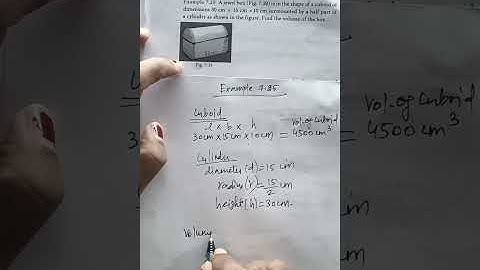 Example 7.25 A jewel box (Fig. 7.39) is in the shape of a cuboid of
dimensions 30 cm × 15 cm × 10 cm surmounted by a half part of
a cylinder as shown in the figure. Find the volume of the box.
Fig. 7.39
Example 7.25
Cuboid
l x b x h
30cm x 15cm x 10cm = 4500 cm³
Vol. of Cuboid
4500 cm³
Cylinder
diameter (d) = 15 cm
radius (r) = 15/2 cm
height (h) = 30cm.
Volum